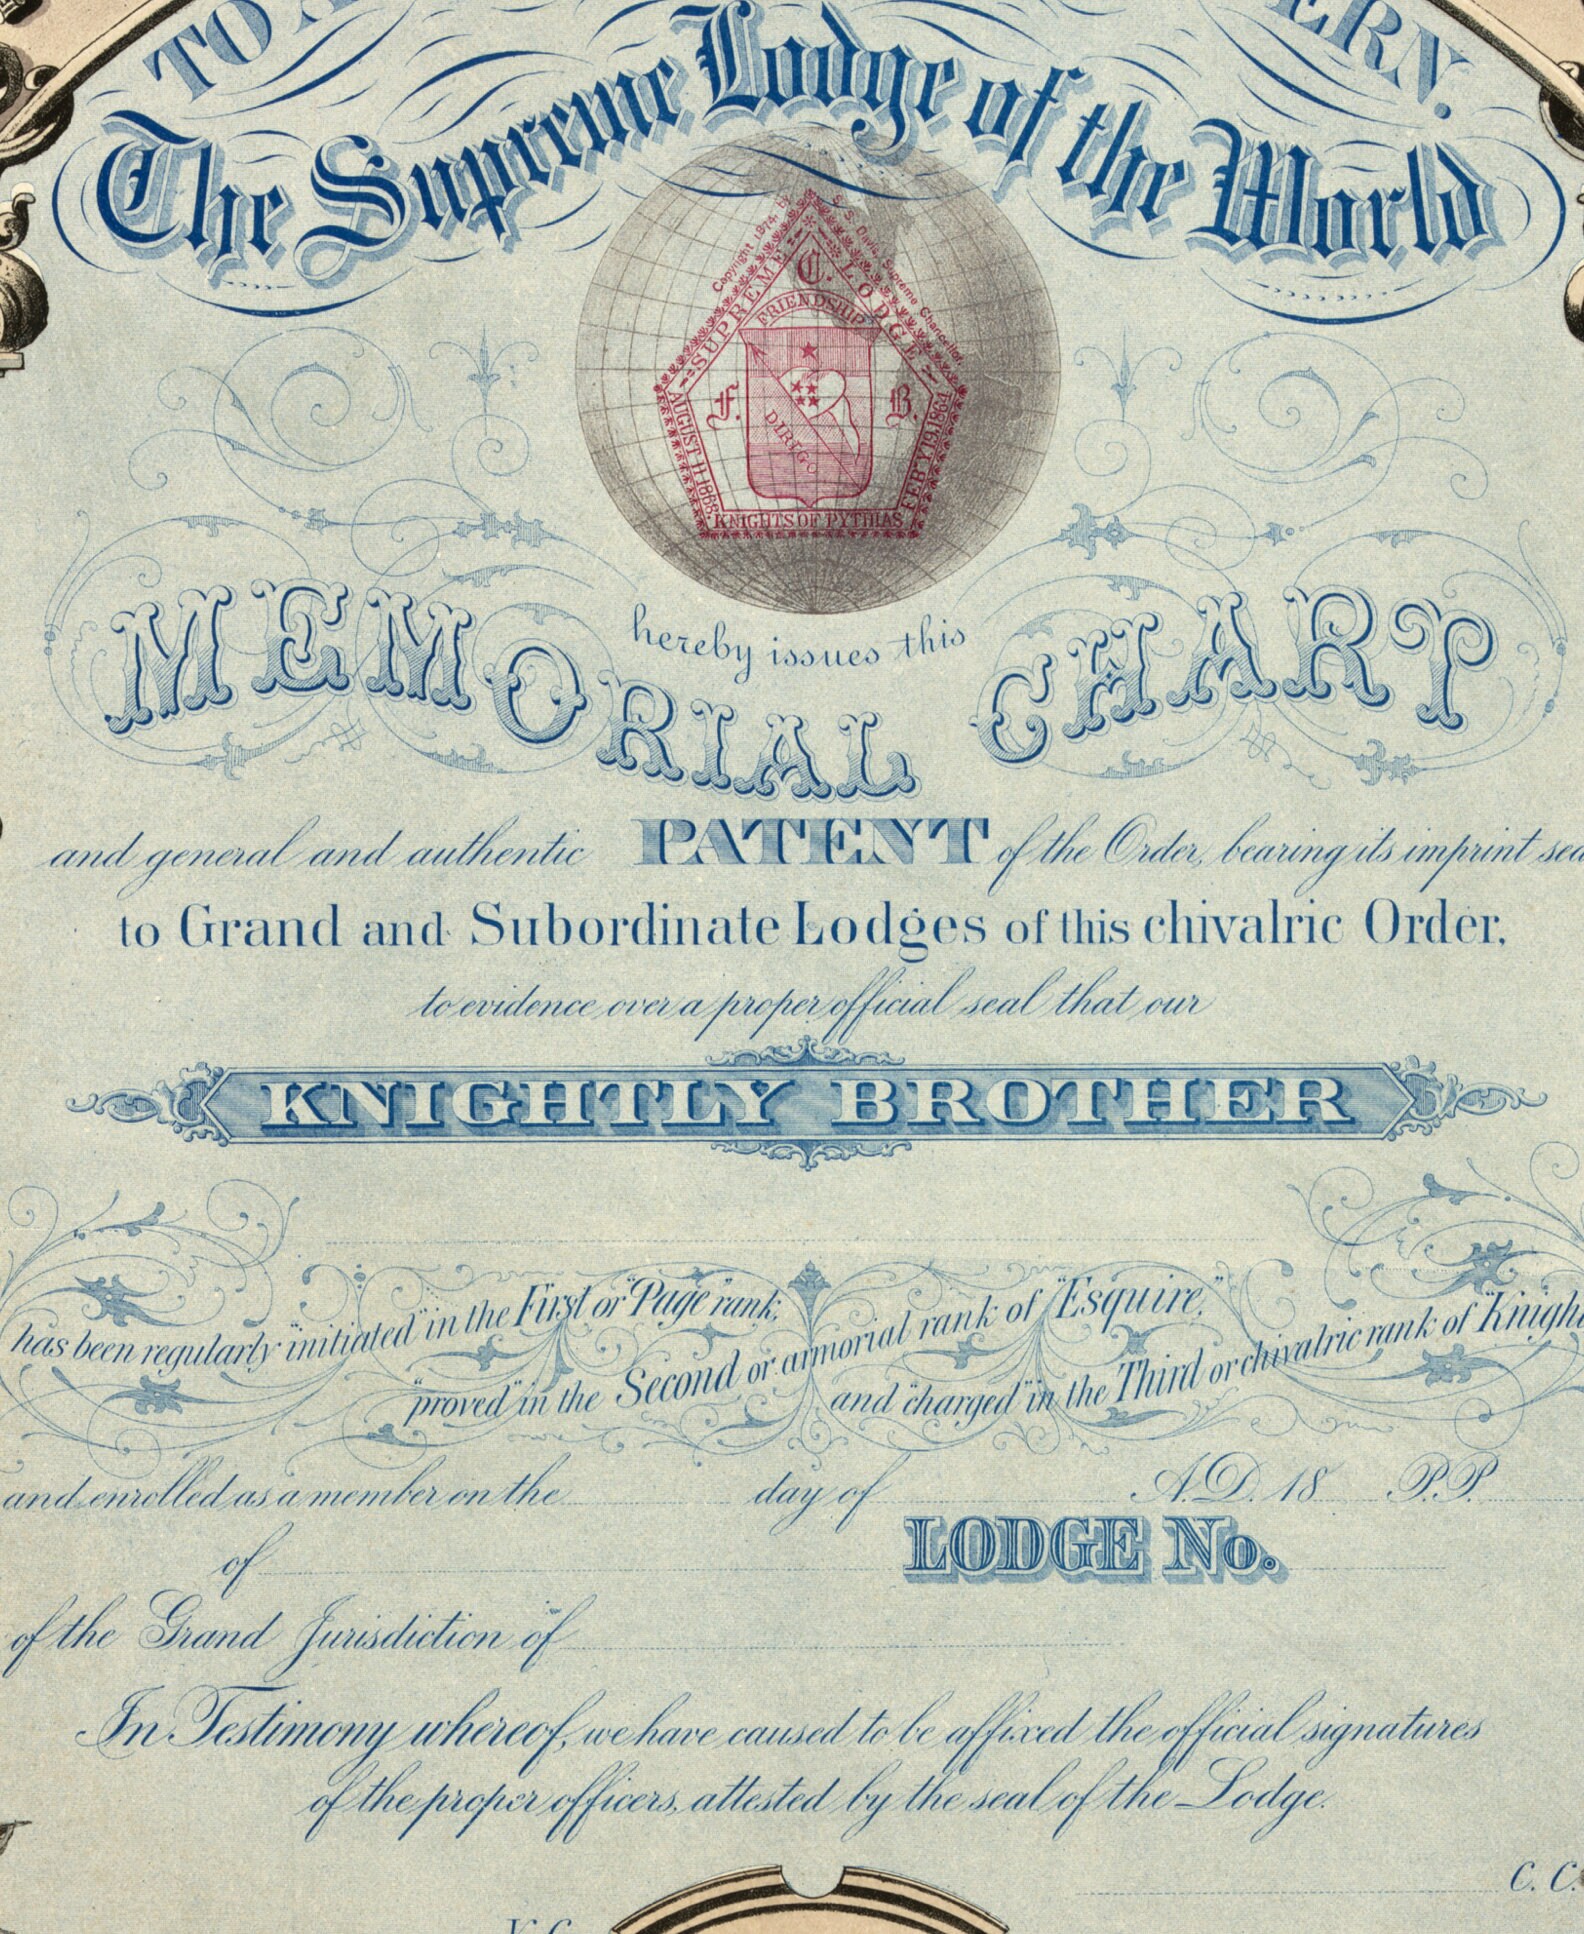 TO
ERN.
The Supreme Lodge of the World
Copyright 1874, by
S. Davis, Supreme Chancellor.
SUPREME LODGE
C.
FRIENDSHIP
F. B.
DIRIGO
AUGUST 11 1868.
FEB'Y 19, 1864
KNIGHTS OF PYTHIAS
hereby issues this
MEMORIAL CHART
and general and authentic PATENT of the Order, bearing its imprint sea
to Grand and Subordinate Lodges of this chivalric Order,
to evidence over a proper official seal that our
KNIGHTLY BROTHER
has been regularly "initiated" in the First or "Page" rank,
"proved" in the Second or armorial rank of "Esquire,"
and "charged" in the Third or chivalric rank of "Knight
and enrolled as a member on the day of A.D. 18 P.P.
of LODGE No.
of the Grand Jurisdiction of
In Testimony whereof, we have caused to be affixed the official signatures
of the proper officers, attested by the seal of the Lodge.
C. C.